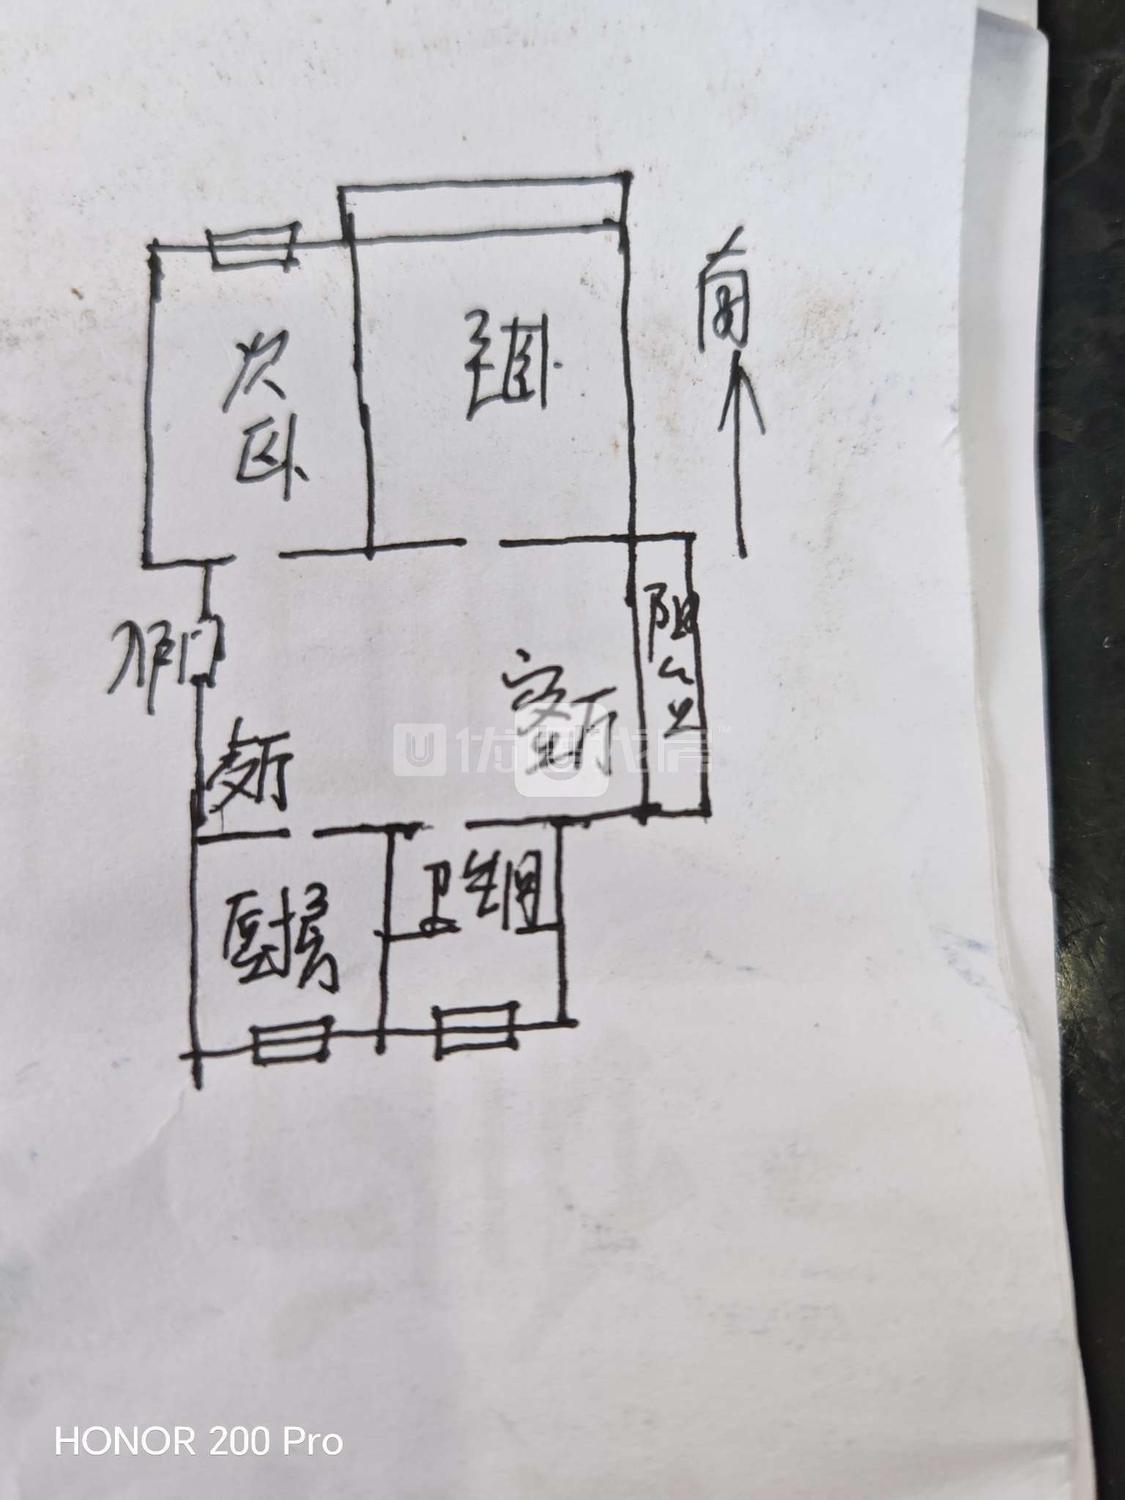 南
次卧
主卧
阳台
入户门
客厅
餐厅
厨房
卫生间
U优
HONOR 200 Pro